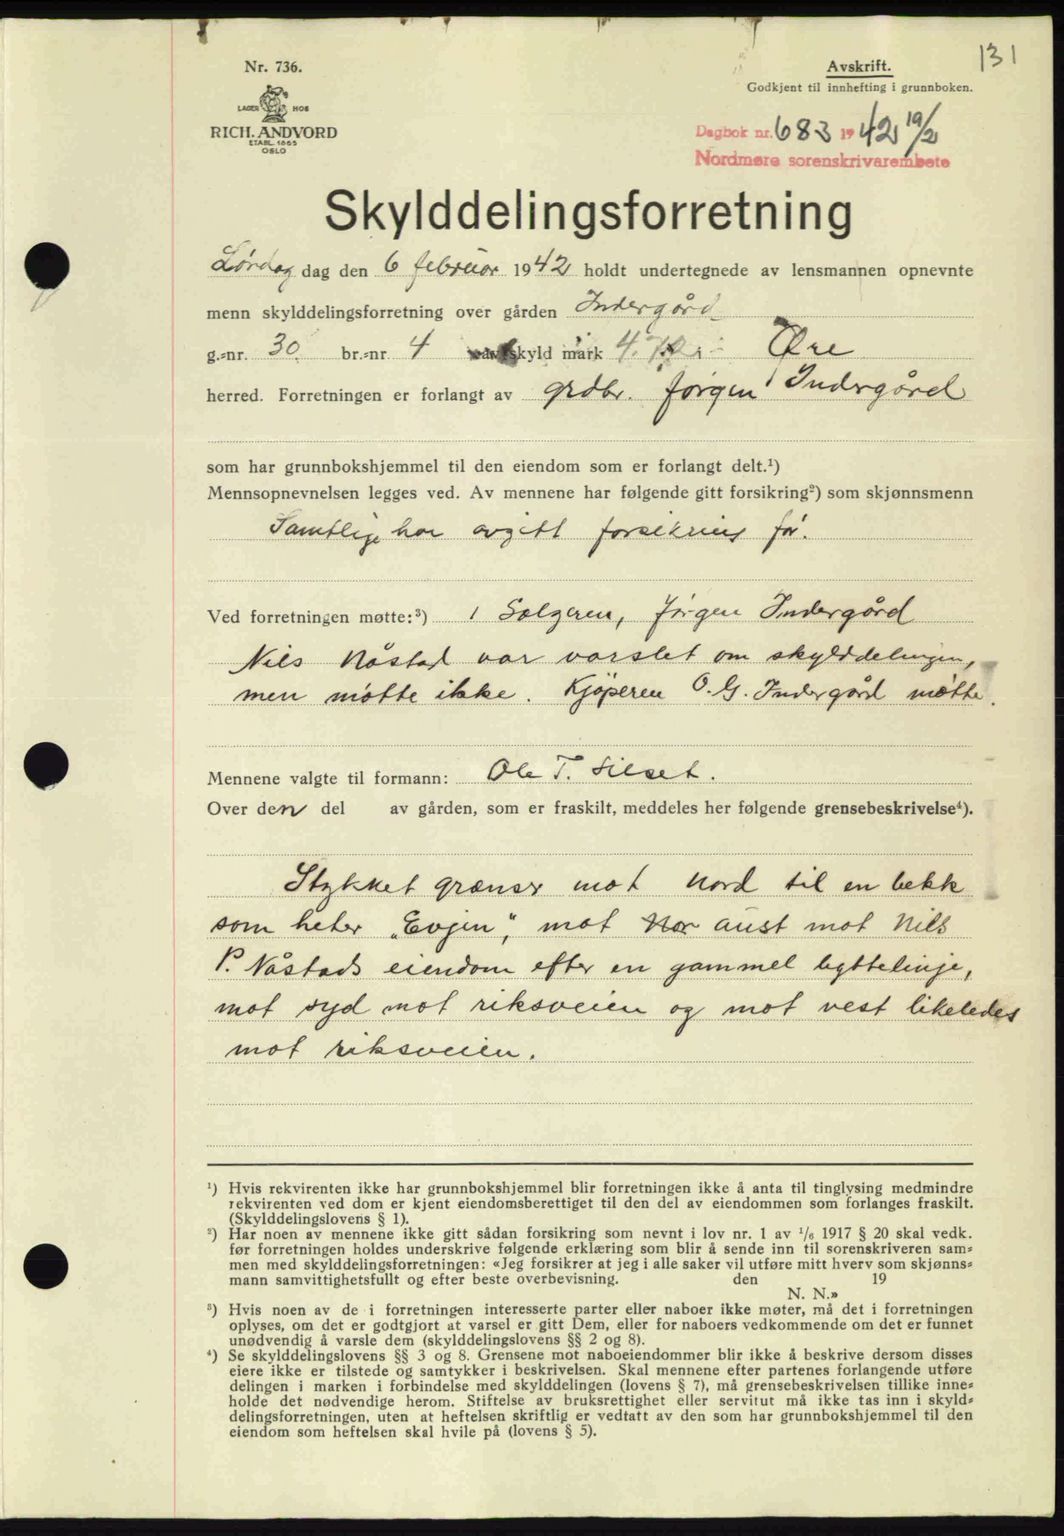 131
Nr. 736.
LAGER HOS
RICH. ANDVORD
ETABL. 1865
OSLO
Avskrift.
Godkjent til innhefting i grunnboken.
Dagbok nr. 683 1942 19/2
Nordmøre sorenskrivarembete
Skylddelingsforretning
Lørdag dag den 6 februar 1942 holdt undertegnede av lensmannen opnevnte
menn skylddelingsforretning over gården Indergård
g.-nr. 30. br.-nr. 4 av skyld mark 4.70 i Øre
herred. Forretningen er forlangt av grdbr. Jørgen Indergård
som har grunnbokshjemmel til den eiendom som er forlangt delt.¹)
Mennsopnevnelsen legges ved. Av mennene har følgende gitt forsikring²) som skjønnsmenn
Samtlige har avgitt forsikring før.
Ved forretningen møtte:³) 1 Selgeren, Jørgen Indergård
Nils Nåstad var varslet om skylddelingen,
men møtte ikke. Kjøperen O. G. Indergård møtte.
Mennene valgte til formann: Ole T. Silset.
Over den del av gården, som er fraskilt, meddeles her følgende grensebeskrivelse⁴).
Stykket grænser mot nord til en bekk
som heter „Evjin", mot Nor aust mot Nils
P. Nåstads eiendom efter en gammel byttelinje,
mot syd mot riksveien og mot vest likeledes
mot riksveien.
¹) Hvis rekvirenten ikke har grunnbokshjemmel blir forretningen ikke å anta til tinglysing medmindre
rekvirenten ved dom er kjent eiendomsberettiget til den del av eiendommen som forlanges fraskilt.
(Skylddelingslovens § 1).
²) Har noen av mennene ikke gitt sådan forsikring som nevnt i lov nr. 1 av ¹/₆ 1917 § 20 skal vedk.
før forretningen holdes underskrive følgende erklæring som blir å sende inn til sorenskriveren sam-
men med skylddelingsforretningen: «Jeg forsikrer at jeg i alle saker vil utføre mitt hverv som skjønns-
mann samvittighetsfullt og efter beste overbevisning. den 19
N. N.»
³) Hvis noen av de i forretningen interesserte parter eller naboer ikke møter, må det i forretningen
oplyses, om det er godtgjort at varsel er gitt Dem, eller for naboers vedkommende om det er funnet
unødvendig å varsle dem (skylddelingslovens §§ 2 og 8).
⁴) Se skylddelingslovens §§ 3 og 8. Grensene mot naboeiendommer blir ikke å beskrive dersom disses
eiere ikke er tilstede og samtykker i beskrivelsen. Skal mennene efter partenes forlangende utføre
delingen i marken i forbindelse med skylddelingen (lovens § 7), må grensebeskrivelsen tillike inne-
holde det nødvendige herom. Stiftelse av bruksrettighet eller servitut må ikke tas inn i skyld-
delingsforretningen, uten at heftelsen skriftlig er vedtatt av den som har grunnbokshjemmel til den
eiendom som heftelsen skal hvile på (lovens § 5).